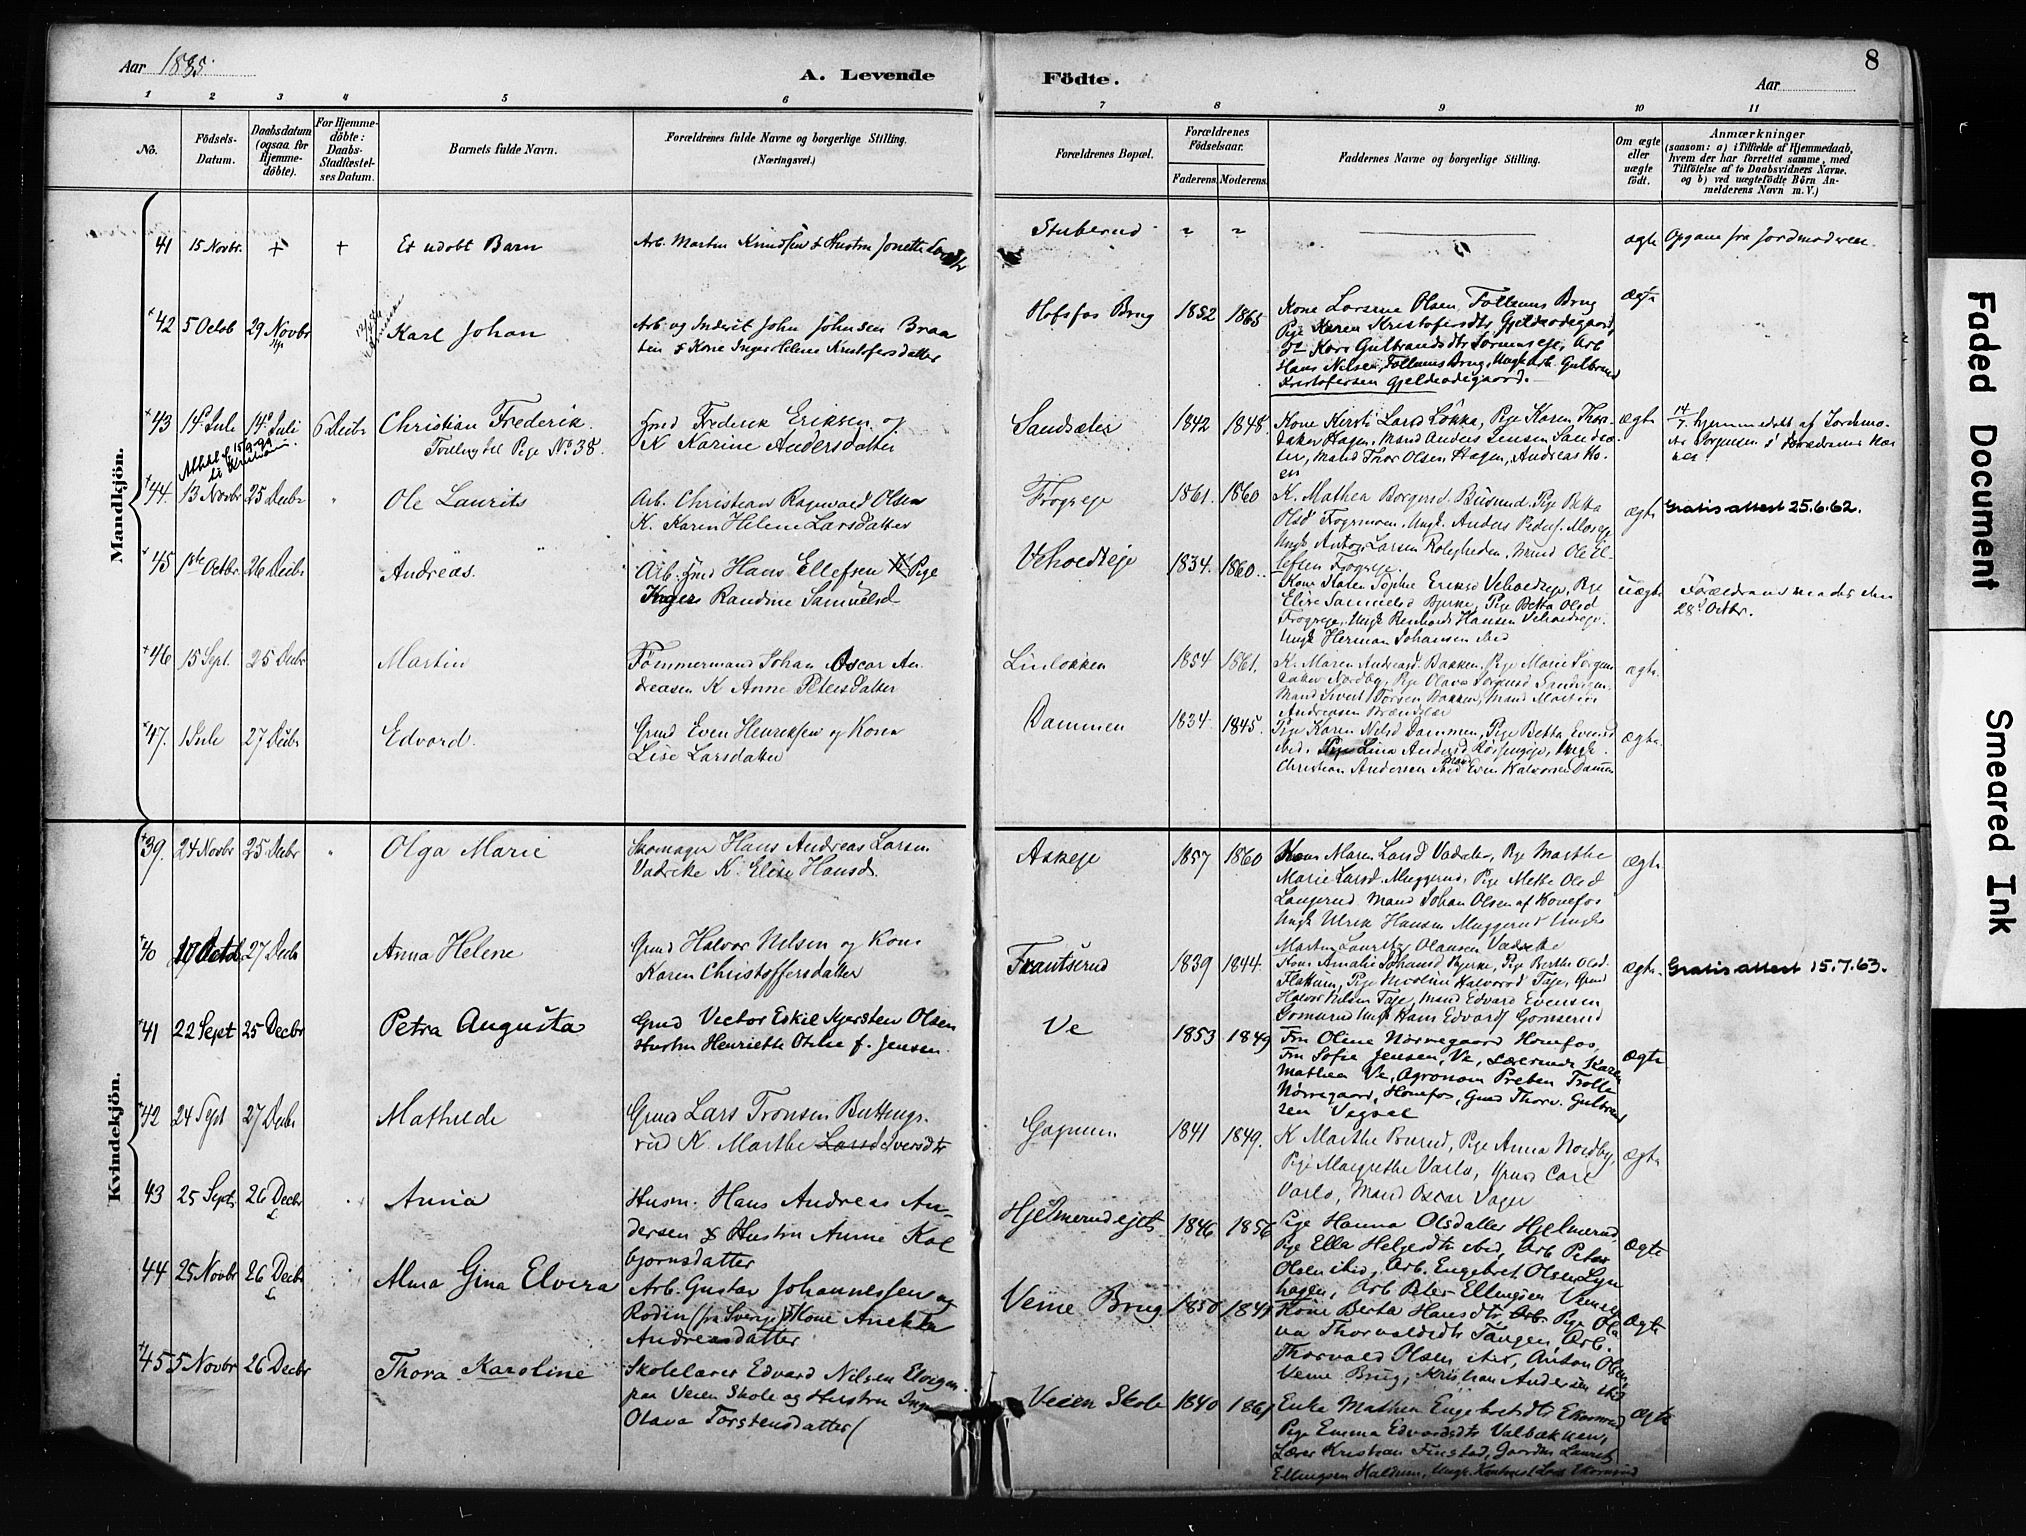 8
Aar 1885.
A. Levende
Födte.
Aar
1 2 3 4 5 6 7 8 9 10 11
No.
Födsels-
Datum.
Daabsdatum
(ogsaa for
Hjemme-
döbte).
For Hjemme-
döbte:
Daabs-
Stadfæstel-
ses Datum.
Barnets fulde Navn.
Forældrenes fulde Navne og borgerlige Stilling.
(Næringsvei.)
Forældrenes Bopæl.
Forældrenes
Födselsaar.
Faderens. Moderens.
Faddernes Navne og borgerlige Stilling.
Om ægte
eller
uægte
födt.
Anmærkninger
(saasom: a) i Tilfælde af Hjemmedaab,
hvem der har forrettet samme, med
Tilföielse af to Daabsvidners Navne.
og b) ved uægtefödte Börn An-
melderens Navn m. V.)
Mandkjön.
41 15 Novbr. + + Et udobt Barn
Arb. Martin Knudsen & Hustru Jonette
Stuberud " " ægte Opgave fra Jordmoderen.
42 5 Octob 29 Novbr Karl Johan
Arb. og Inderst John Johnsen Braa
ten & Kone Inger Helene Kristofersdatter
Hofsfos Brug 1852 1865 ægte
Kone Lovise Olsen, Follums Brug
Pige Karen Kristofersdtr Gjeldeodegaard,
Do Kari Gulbrandsdtr Sørumseje, Arb
Hans Nilsen, Follums Brug, Ungk. Arb. Gulbrand
Kristofersen Gjeldeodegaard.
43 14de Juli 14de Juli 6 Decbr Christian Frederik.
Tvilling til Pige No 38.
Grd Frederik Eriksen og
K Karine Andersdatter
Sandsæter 1842 1848. ægte
Kone Kirsti Larsd Løkka, Pige Karen Thor
datter Hagen, Mand Anders Jensen Sandsæ
ter, Mand Thor Olsen Hagen, Andreas
14/7 hjemmedøbt af Jordemo
44. 13 Novbr 25 Decbr " Ole Laurits
Arb. Christian Ragnvald Olsen
K. Karen Helene Larsdatter
Frogeje 1861. 1860 ægte Gratis attest 25.6.62.
K. Mathea Borgersd Busund, Pige Betta
Olsd Frogsmoen, Ungk. Anders Peders. Moseje
Ungk Anton Larsen Roligheden, Mand Ole El-
lefsen Frogeje.
45 1ste Octbr. 26 Decbr Andreas.
Arb. Hans Ellefsen Pige
Ingers Randine Samuelsd
Vehvedteje 1834. 1860. uægte
Kone Karen Sophie Eriksd Vehvedteje, Pige
Elise Samuelsd Bjerke, Pige Betta Olsd
Frogeje, Ungk Reinhardt Hansen Vehvedteje.
Ungk Herman Johansen ibid
28de Octbr.
46 15 Sept. 25 Decbr Martin
Tømmermand Johan Oscar An-
dreasen K Anne Petersdatter
Linløkken 1854 1861. ægte.
K. Maren Andreasd. Bakken, Pige Marie Jørgens
datter Nordby, Pige Olava
Mand Sivert Torsen Bakken, Mand Martin
Andreasen
47. 1 Juli 27 Decbr Edvard.
Grd Even Henriksen og Kone
Lise Larsdatter
Dammen 1834 1845. ægte.
Pige Karen Nilsd Dammen, Pige Betta Evensd
ibid. Pige Lina Andersd, Ungk.
Christian Andersen ibid Mand Even Halvorsen Dammen
Kvindekjön.
39. 24 Novbr 25 Decbr " Olga Marie
Skomager Hans Andreas Larsen
K. Elise Hansd.
Askeje 1857 1860 ægte
Kone Maren Larsd, Pige Marthe
Marie Larsd. Muggerud, Pige Mette Olsd
Langerud Mand Johan Olsen af Hønefos
Ungk Ulrik Hansen Muggerud Ungk
Martin Lauritz Olausen
40 27 Decb Anna Helene
Grd Halvor Nilsen og Kone
Karen Christoffersdatter
Frantserud 1839 1844. ægte. Gratis attest 15.7.63.
Kone Amalie Johansd Bjerke, Pige Berthe Olsd.
Flattum, Pige Nicoline Halvorsd Taje, Grd
Halvor Nilsen Taje, Mand Edvard Evensen
Gomerud Ungk Hans Edvards Gomserud
41 22 Sept 25 Decbr Petra Augusta
Grd Victor Eskil Kjersten Olsen
Hustru Henriette Otilie f. Jensen
Ve 1853 1849 Ægte
Fru Oline Nørregaard Hønefos,
Fru Sofie Jensen, Ve, Lærerinde Karen
Mathea Ve, Agronom Preben Trolle
Nørregaard, Hønefos, Grd Thorv. Gulbrand
sen Vegsel
42 24 Sept 27 Decbr Mathilde
Grd Lars Tronsen Buttings-
rud K. Marthe Larsd Iversdtr
Gagnum 1841 1849. ægte
K Marthe Burud, Pige Anna Nordby,
Pige Margrethe Varlo, Grd Carl
Varlo, Mand Oscar Sager
43 25 Sept. 26 Decbr Anna
Husm. Hans Andreas An-
dersen & Hustru Anne Kol
bjornsdatter
Hjelmerudejet 1846 1856 Ægte
Pige Hanna Olsdatter Hjelmerud,
Pige Ella Helgesdtr ibid, Arb Peter
Olsen ibid, Arb. Engebret Olsen Lyn
hagen, Arb Peter Ellingsen
44 25 Novbr 26 Decbr Alma Gina Elvira
Arb. Gustav Johannessen og
Rodin (fra Sverige) & Kone Anette
Andreasdatter
Veme Brug 1850 Ægte
Kone Berta Hansdtr Pige Ola
va Thorvaldsdtr Tangen, Arb.
Thorvald Olsen ibid, Anton Olsen
Veme Brug, Kristian Andersen ibid
45 5 Novbr 26 Decbr Thora Karoline
Skolelærer Edvard Nilsen
paa Veien Skole og Hustru Inger
Olava Torstensdatter
Veien Skole 1840 1861 Ægte
Enke Mathea Engebretsdtr Ekornrud
Pige Emma Edvardsdtr Valbækken,
Lærer Kristian Finstad, Gaardm Laurits
Ellingsen Haldum, Ungk.
Faded Document
Smeared Ink